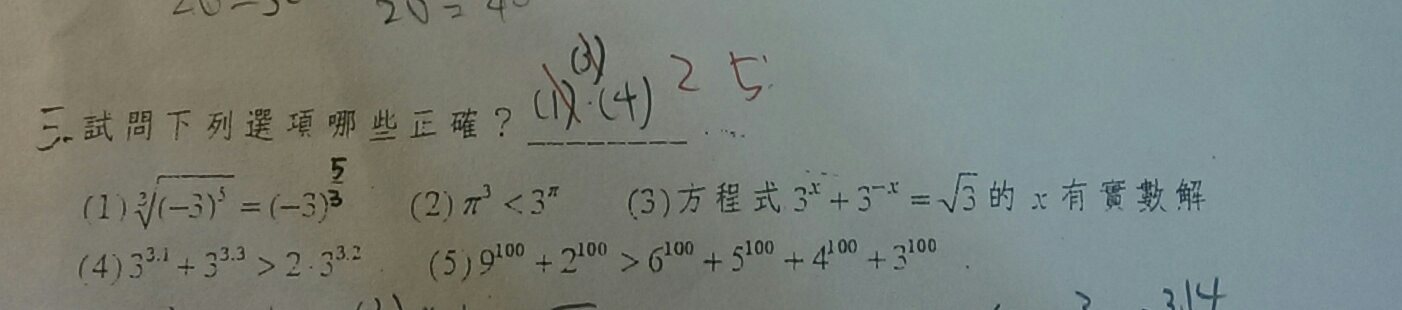 (3)
三.試問下列選項哪些正確？(1)·(4) 2 5
(1) ∛(-3)⁵ = (-3)^(5/3) (2) π³ < 3^π (3) 方程式 3^x + 3^(-x) = √3 的 x 有實數解
(4) 3^3.1 + 3^3.3 > 2·3^3.2 (5) 9^100 + 2^100 > 6^100 + 5^100 + 4^100 + 3^100
3.14